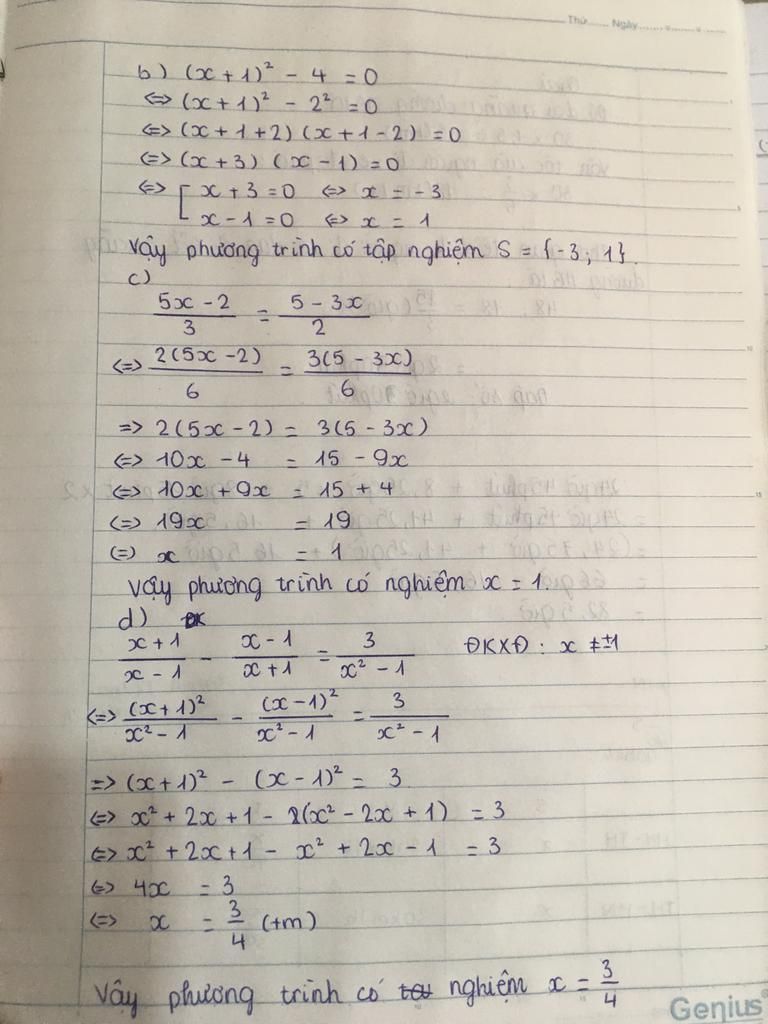 Thứ...... Ngày...............
b) (x + 1)² - 4 = 0
⇔ (x + 1)² - 2² = 0
⇔ (x + 1 + 2) (x + 1 - 2) = 0
⇔ (x + 3) (x - 1) = 0
⇔ [ x + 3 = 0 ⇔ x = - 3
x - 1 = 0 ⇔ x = 1
Vậy phương trình có tập nghiệm S = {-3 ; 1}.
c)
(5x - 2)/3 = (5 - 3x)/2
⇔ 2(5x - 2)/6 = 3(5 - 3x)/6
⇒ 2(5x - 2) = 3(5 - 3x)
⇔ 10x - 4 = 15 - 9x
⇔ 10x + 9x = 15 + 4
⇔ 19x = 19
⇔ x = 1
Vậy phương trình có nghiệm x = 1.
d)
(x + 1)/(x - 1) - (x - 1)/(x + 1) = 3/(x² - 1) ĐKXĐ : x ≠ ±1
⇔ (x + 1)²/(x² - 1) - (x - 1)²/(x² - 1) = 3/(x² - 1)
⇒ (x + 1)² - (x - 1)² = 3
⇔ x² + 2x + 1 - (x² - 2x + 1) = 3
⇔ x² + 2x + 1 - x² + 2x - 1 = 3
⇔ 4x = 3
⇔ x = 3/4 (tm)
Vậy phương trình có nghiệm x = 3/4
Genius